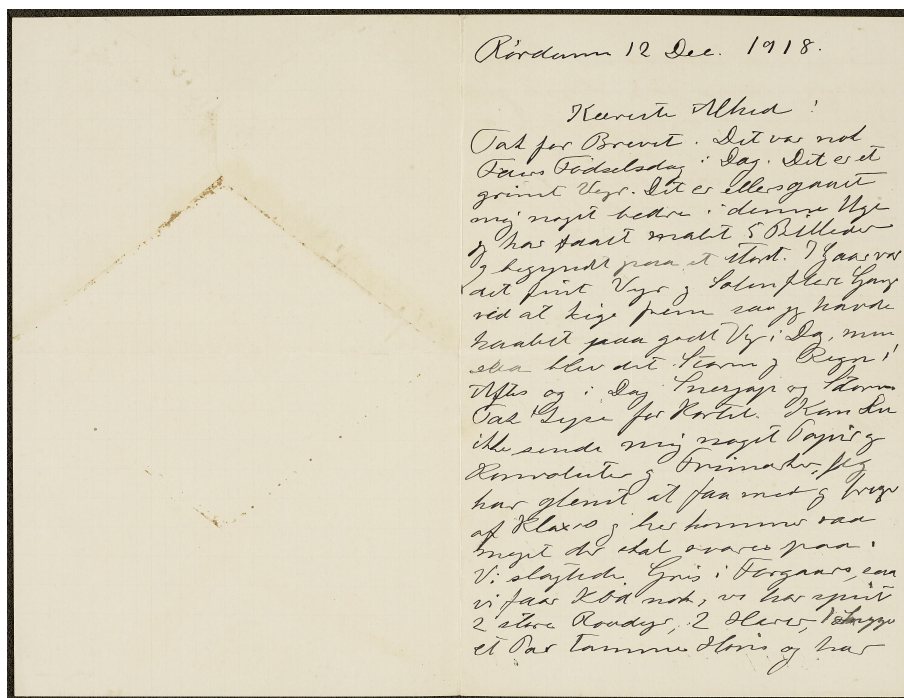 Rørdam 12 Dec. 1918.
Kæreste Alhed!
Tak for Brevet. Det var nok
Fars Fødselsdag i Dag. Det er et
grimt Vejr. Det er ellers gaaet
mig noget bedre i denne Uge
og har faaet malet 5 Billeder
og begyndt paa et stort. I Gaar var
det fint Vejr og Solen flere Gang
ved at kige frem saa jeg havde
haabet paa godt Vejr i Dag, men
saa blev det Storm og Regn i
Aftes og i Dag Snesjap og Storm
Tak Lysse for Kortet. Kan Du
ikke sende mig noget Papir og
Konvolutter og Frimærker, jeg
har glemt at faa med og
af Klaxs og her kommer saa
meget der skal svares paa.
Vi slagtede Gris i Forgaars, saa
vi faar Kød nok, vi har spist
2 store Raadyr, 2 Harer,
et Par tamme Høns og har